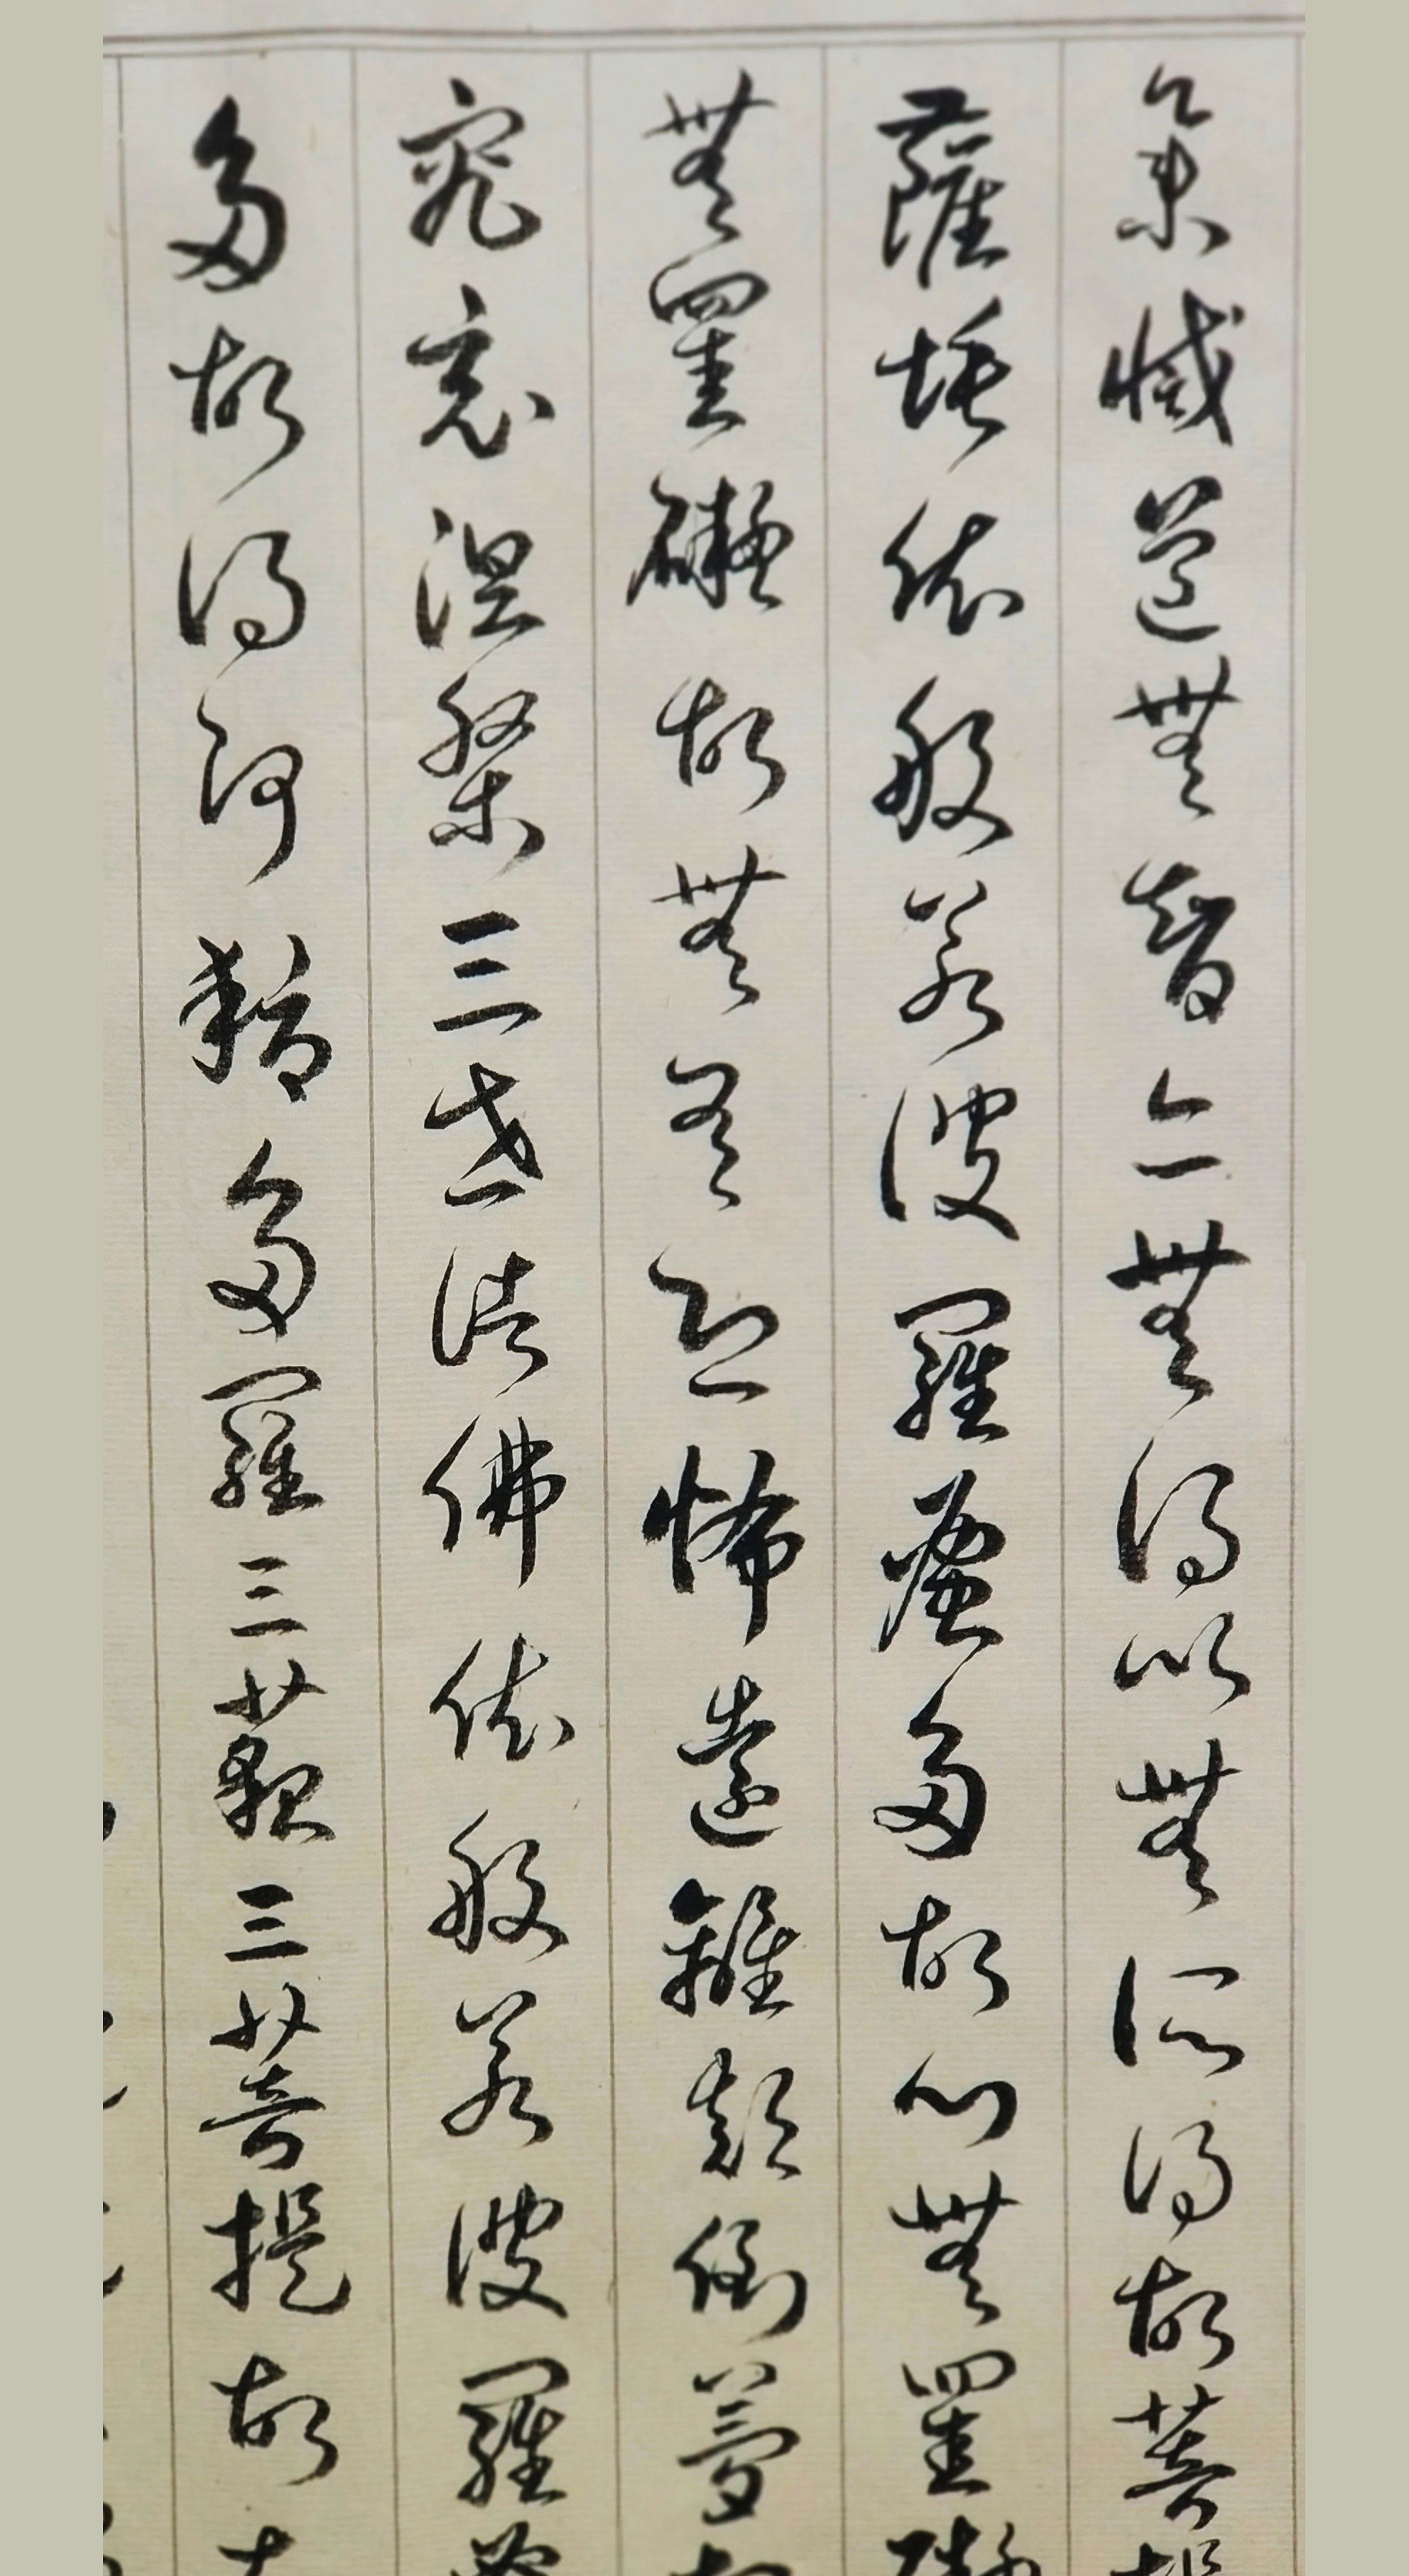 集滅道無智亦無得以無所得故菩提
薩埵依般若波羅蜜多故心無罣礙
無罣礙故無有恐怖遠離顛倒夢
究竟涅槃三世諸佛依般若波羅
多故得阿耨多羅三藐三菩提故